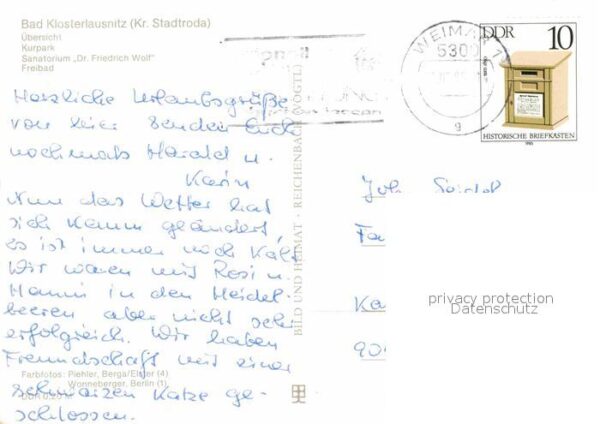 Bad Klosterlausnitz (Kr. Stadtroda)
Übersicht
Kurpark
Sanatorium „Dr. Friedrich Wolf"
Freibad
DDR 10
HISTORISCHE BRIEFKASTEN
1985
WEIMAR 1
5300
g
Herzliche Urlaubsgrüße
von hier senden Euch
nochmals Harald u.
Karin
Nun das Wetter hat
sich kaum geändert,
es ist immer noch kalt.
Wir waren mit Rosi u.
Hanni in den Heidel-
beeren aber nicht sehr
erfolgreich. Wir haben
Freundschaft mit einer
schwarzen Katze ge-
schlossen.
BILD UND HEIMAT · REICHENBACH (VOGTL
Fa
Ka
90
privacy protection
Datenschutz
Farbfotos: Piehler, Berga/Elster (4)
Wonneberger, Berlin (1)
DDR 0,25 M